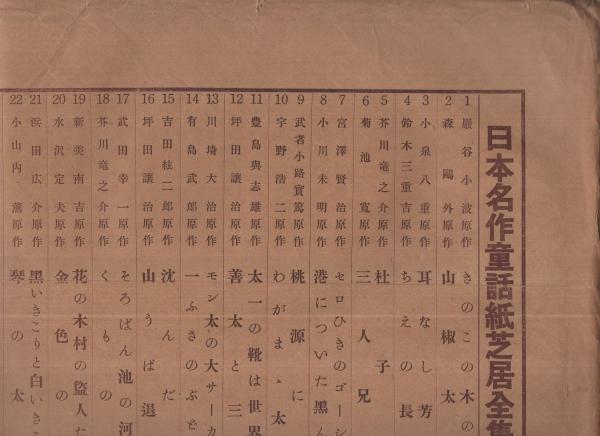 日本名作童話紙芝居全集
1 巌谷小波原作 きのこの木の
2 森鷗外原作 山椒太
3 小泉八重原作 耳なし芳
4 鈴木三重吉原作 ちえの長
5 芥川竜之介原作 杜子
6 菊池寛原作 三人兄
7 宮澤賢治原作 セロひきのゴーシ
8 小川未明原作 港についた黒ん
9 武者小路實篤原作 桃源に
10 宇野浩二原作 わがまゝ太
11 豊島與志雄原作 太一の靴は世界
12 坪田譲治原作 善太と三
13 川埼大治原作 モン太の大サーカ
14 有島武郎原作 一ふさのぶど
15 吉田絃二郎原作 沈んだ
16 坪田譲治原作 山うば退
17 武田幸一原作 そろばん池の河
18 芥川竜之介原作 くもの
19 新美南吉原作 花の木村の盗人た
20 水沢定夫原作 金色の
21 浜田広介原作 黒いきこりと白いきこ
22 小山内薫原作 琴の太